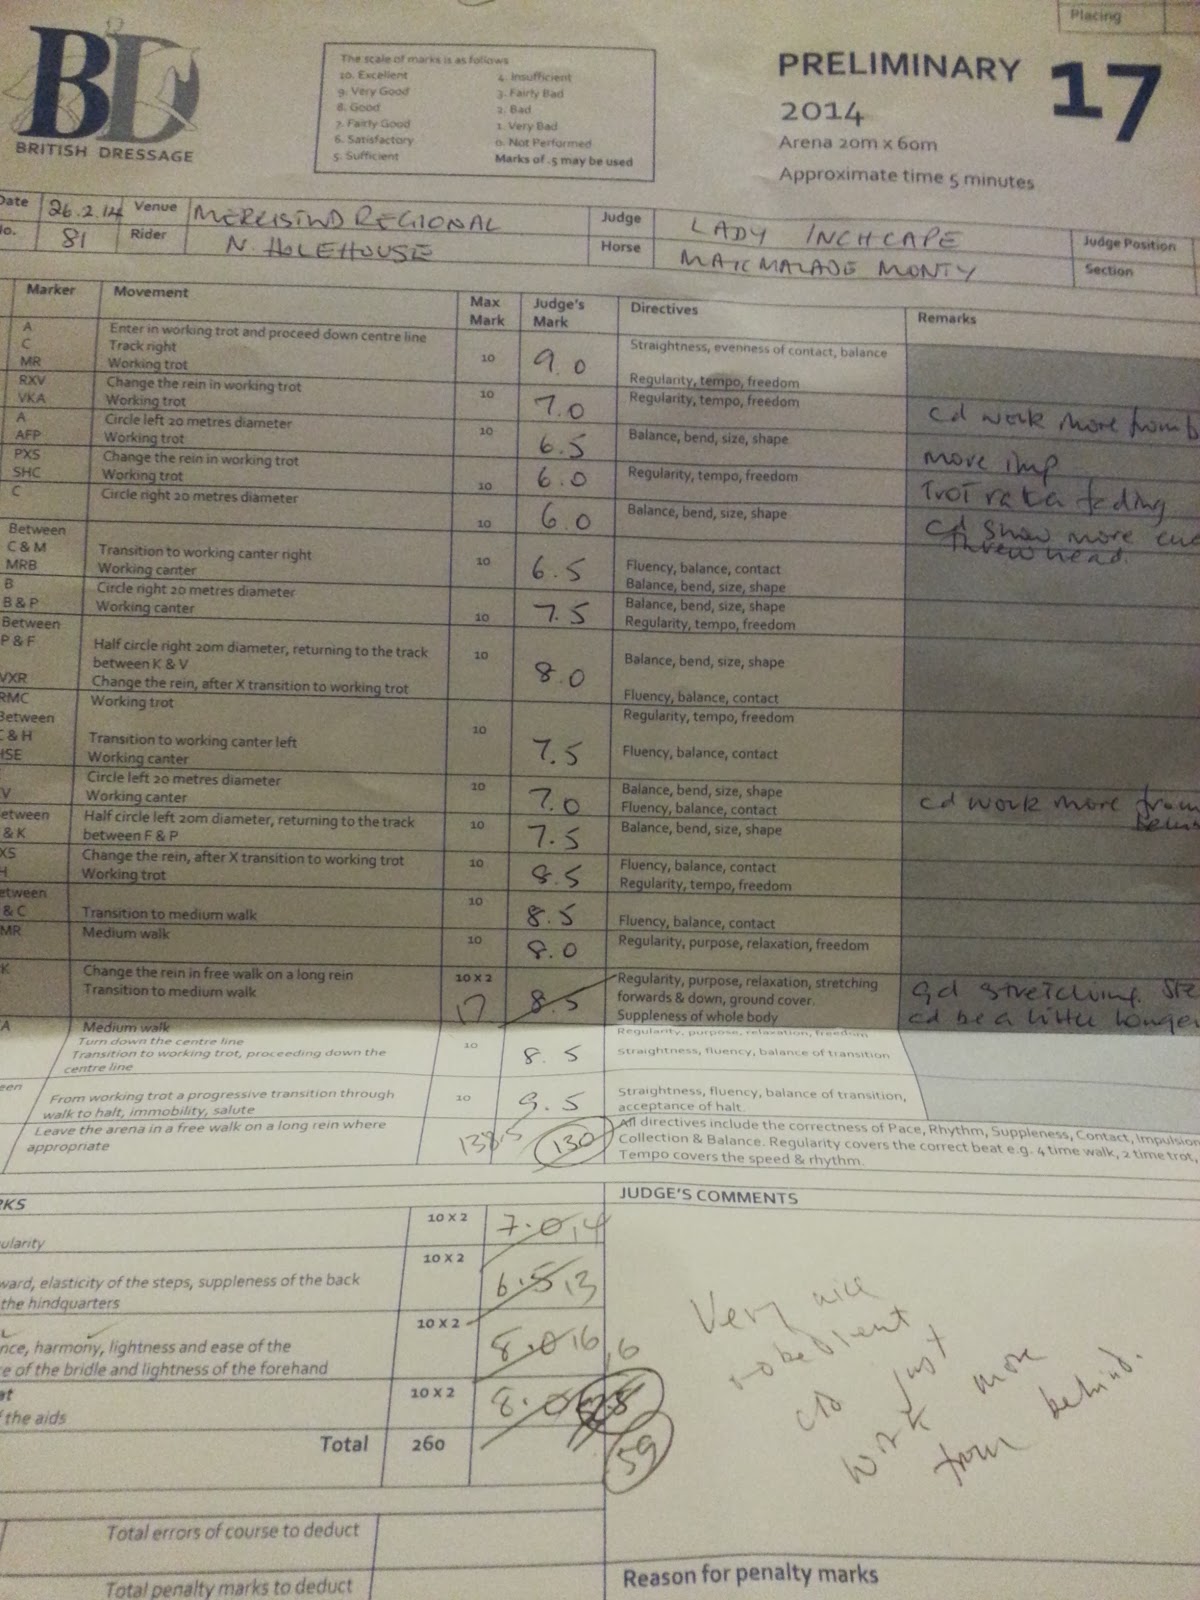 Placing
BD
BRITISH DRESSAGE
The scale of marks is as follows
10. Excellent 4. Insufficient
9. Very Good 3. Fairly Bad
8. Good 2. Bad
7. Fairly Good 1. Very Bad
6. Satisfactory 0. Not Performed
5. Sufficient Marks of .5 may be used
PRELIMINARY 17
2014
Arena 20m x 60m
Approximate time 5 minutes
Date 26.2.14 Venue REGIONAL Judge LADY INCHCAPE Judge Position
No. 81 Rider N. HOLEHOUSE Horse MONTY Section
Marker Movement Max Mark Judge's Mark Directives Remarks
A Enter in working trot and proceed down centre line
C Track right 10 9.0 Straightness, evenness of contact, balance
MR Working trot Regularity, tempo, freedom
RXV Change the rein in working trot 10 7.0 Regularity, tempo, freedom cd work more from b
VKA Working trot
A Circle left 20 metres diameter 10 6.5 Balance, bend, size, shape more imp
AFP Working trot
PXS Change the rein in working trot 10 6.0 Regularity, tempo, freedom Trot fading
SHC Working trot
C Circle right 20 metres diameter 10 6.0 Balance, bend, size, shape cd show more
threw head.
Between
C & M Transition to working canter right 10 6.5 Fluency, balance, contact
MRB Working canter Balance, bend, size, shape
B Circle right 20 metres diameter 10 7.5 Balance, bend, size, shape
B & P Working canter Regularity, tempo, freedom
Between
P & F Half circle right 20m diameter, returning to the track 10 8.0 Balance, bend, size, shape
between K & V
VXR Change the rein, after X transition to working trot Fluency, balance, contact
RMC Working trot Regularity, tempo, freedom
Between
C & H Transition to working canter left 10 7.5 Fluency, balance, contact
HSE Working canter
Circle left 20 metres diameter 10 7.0 Balance, bend, size, shape cd work more from
V Working canter Fluency, balance, contact
etween Half circle left 20m diameter, returning to the track 10 7.5 Balance, bend, size, shape
& K between F & P
XS Change the rein, after X transition to working trot 10 8.5 Fluency, balance, contact
H Working trot Regularity, tempo, freedom
etween
& C Transition to medium walk 10 8.5 Fluency, balance, contact
MR Medium walk 10 8.0 Regularity, purpose, relaxation, freedom
K Change the rein in free walk on a long rein 10 x 2 17 8.5 Regularity, purpose, relaxation, stretching gd stretching. Ste
Transition to medium walk forwards & down, ground cover. cd be a little longer
Suppleness of whole body
A Medium walk Regularity, purpose, relaxation, freedom
Turn down the centre line 10 8.5 Straightness, fluency, balance of transition
Transition to working trot, proceeding down the
centre line
een From working trot a progressive transition through 10 9.5 Straightness, fluency, balance of transition,
walk to halt, immobility, salute acceptance of halt.
Leave the arena in a free walk on a long rein where 138.5 130 All directives include the correctness of Pace, Rhythm, Suppleness, Contact, Impulsion
appropriate Collection & Balance. Regularity covers the correct beat e.g. 4 time walk, 2 time trot,
Tempo covers the speed & rhythm.
RKS JUDGE'S COMMENTS
ularity 10 X 2 7.0 14
ward, elasticity of the steps, suppleness of the back 10 X 2 6.5 13
the hindquarters
nce, harmony, lightness and ease of the 10 X 2 8.0 16
e of the bridle and lightness of the forehand
at 10 X 2 8.0 16
f the aids
Total 260 59
Very nice
obedient
cd just
work more
from behind.
Total errors of course to deduct
Total penalty marks to deduct
Reason for penalty marks